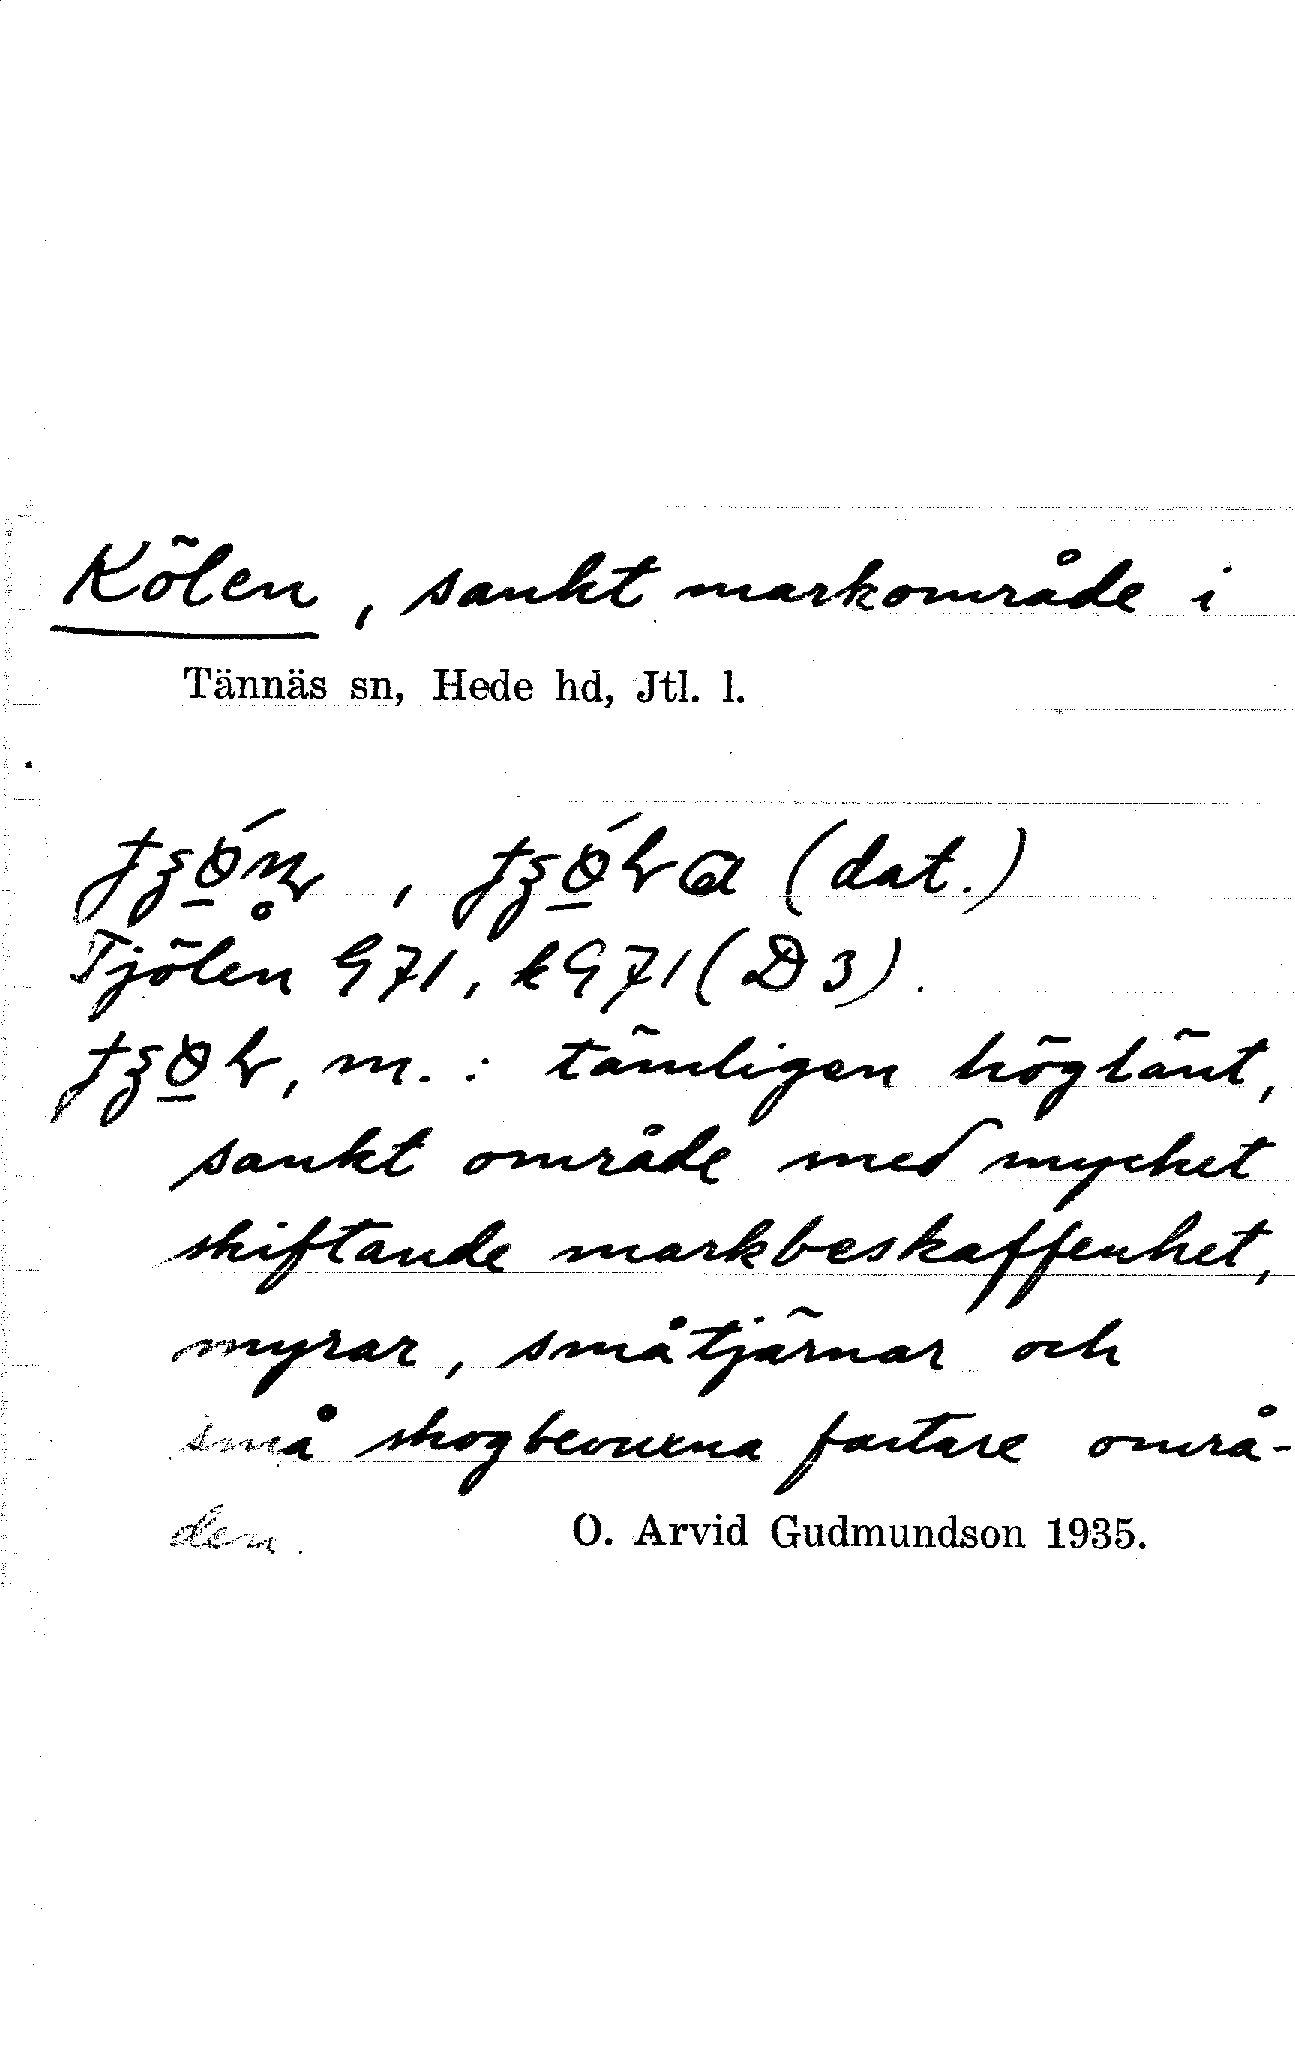 Kölen, sankt markområde i
Tännäs sn, Hede hd, Jtl. l.
(dat.)
Tjölen G71, kG71 (D3).
m.: tämligen höglänt,
sankt område med mycket
skiftande markbeskaffenhet,
myrar, småtjärnar och
små skogbevuxna fastare områ-
den.
O. Arvid Gudmundson 1935.